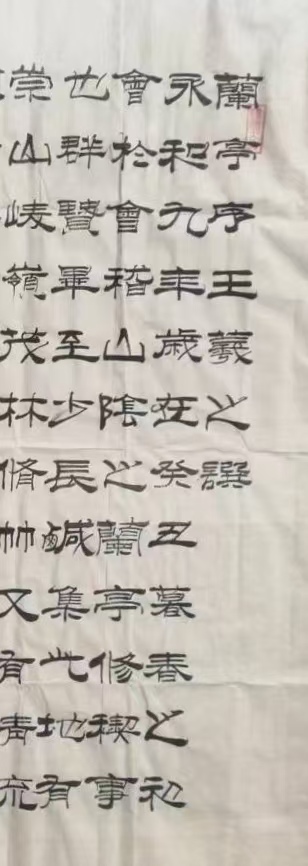 蘭亭序王羲之譔
永和九年歲在癸丑暮春之初
會於會稽山陰之蘭亭修稧事
也群賢畢至少長鹹集此地有
崇山峻嶺茂林脩竹又有清流